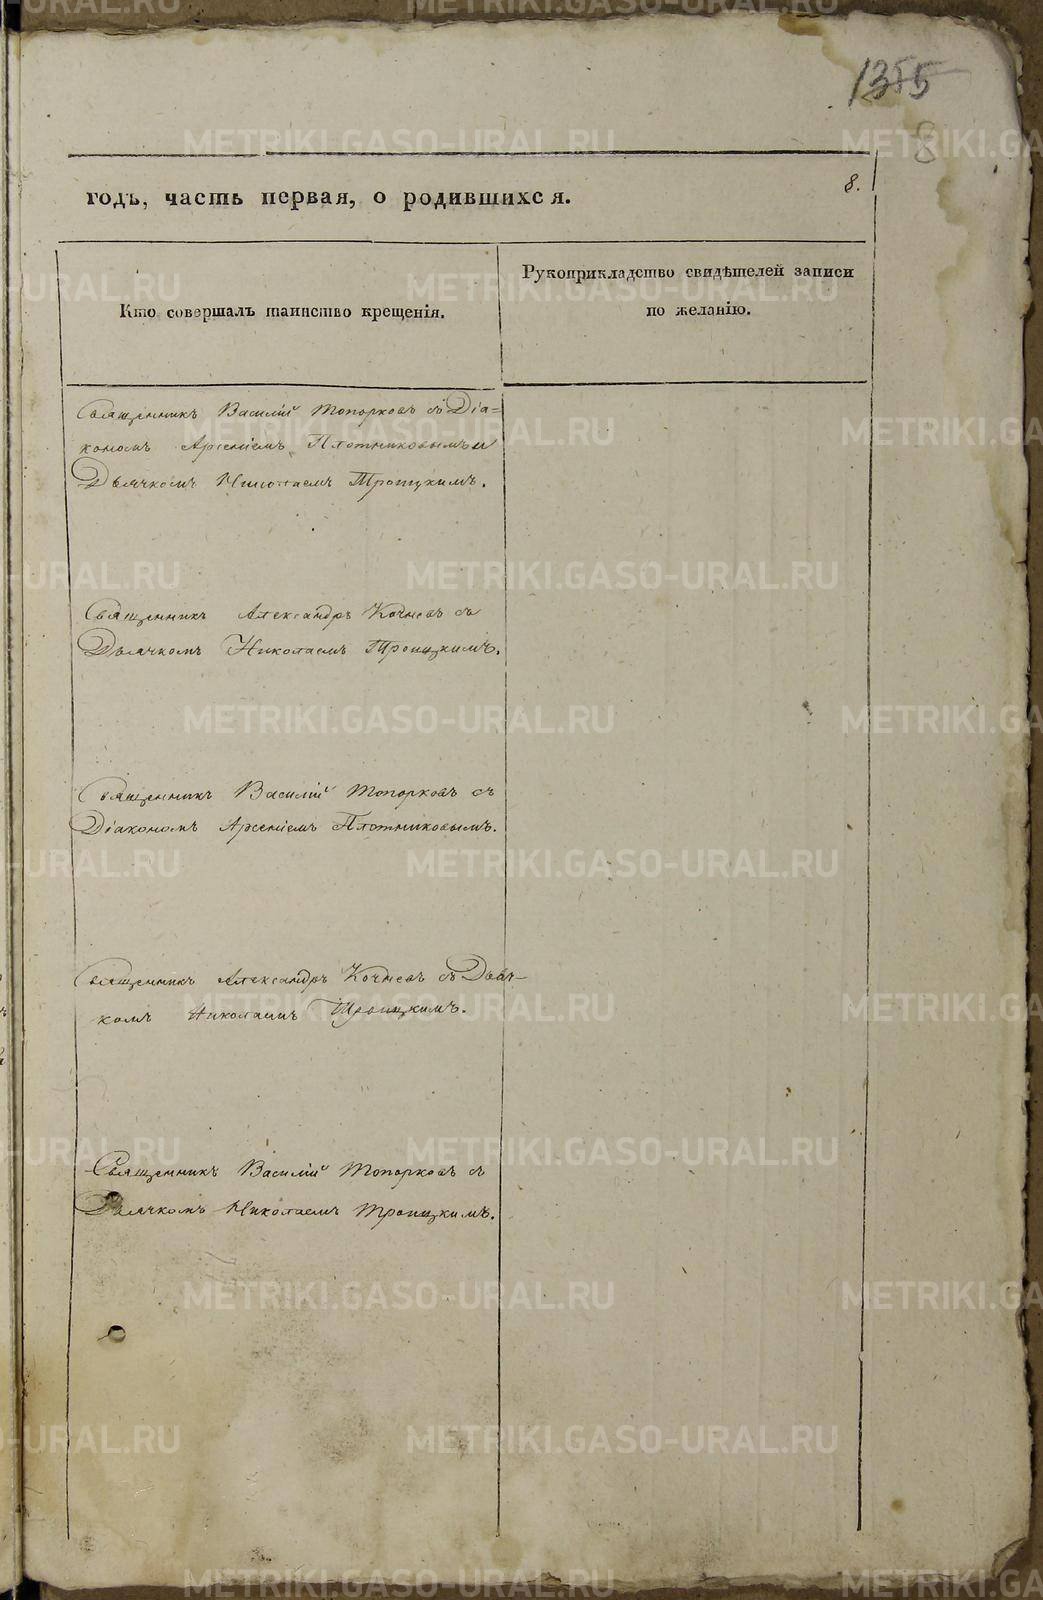 1355
8
8.
годъ, часть первая, о родившихся.
Кто совершалъ таинство крещенія.
Рукоприкладство свидѣтелей записи
по желанію.
Священникъ Василій Топорковъ съ Діа=
кономъ Арсеніемъ Плотниковымъ и
Дьячкомъ Николаемъ Троицкимъ.
Священникъ Александръ Кочневъ съ
Дьячкомъ Николаемъ Троицкимъ.
Священникъ Василій Топорковъ съ
Діакономъ Арсеніемъ Плотниковымъ.
Священникъ Александръ Кочневъ съ Дьяч-
комъ Николаемъ Троицкимъ.
Священникъ Василій Топорковъ съ
Дьячкомъ Николаемъ Троицкимъ.
METRIKI.GASO-URAL.RU